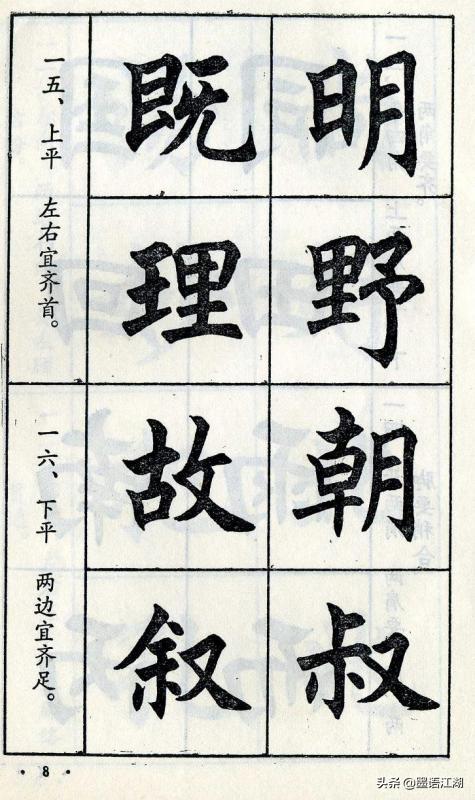 明野朝叔
既理故叙
一五、上平 左右宜齐首。
一六、下平 两边宜齐足。
· 8 ·
头条 @墨语江湖